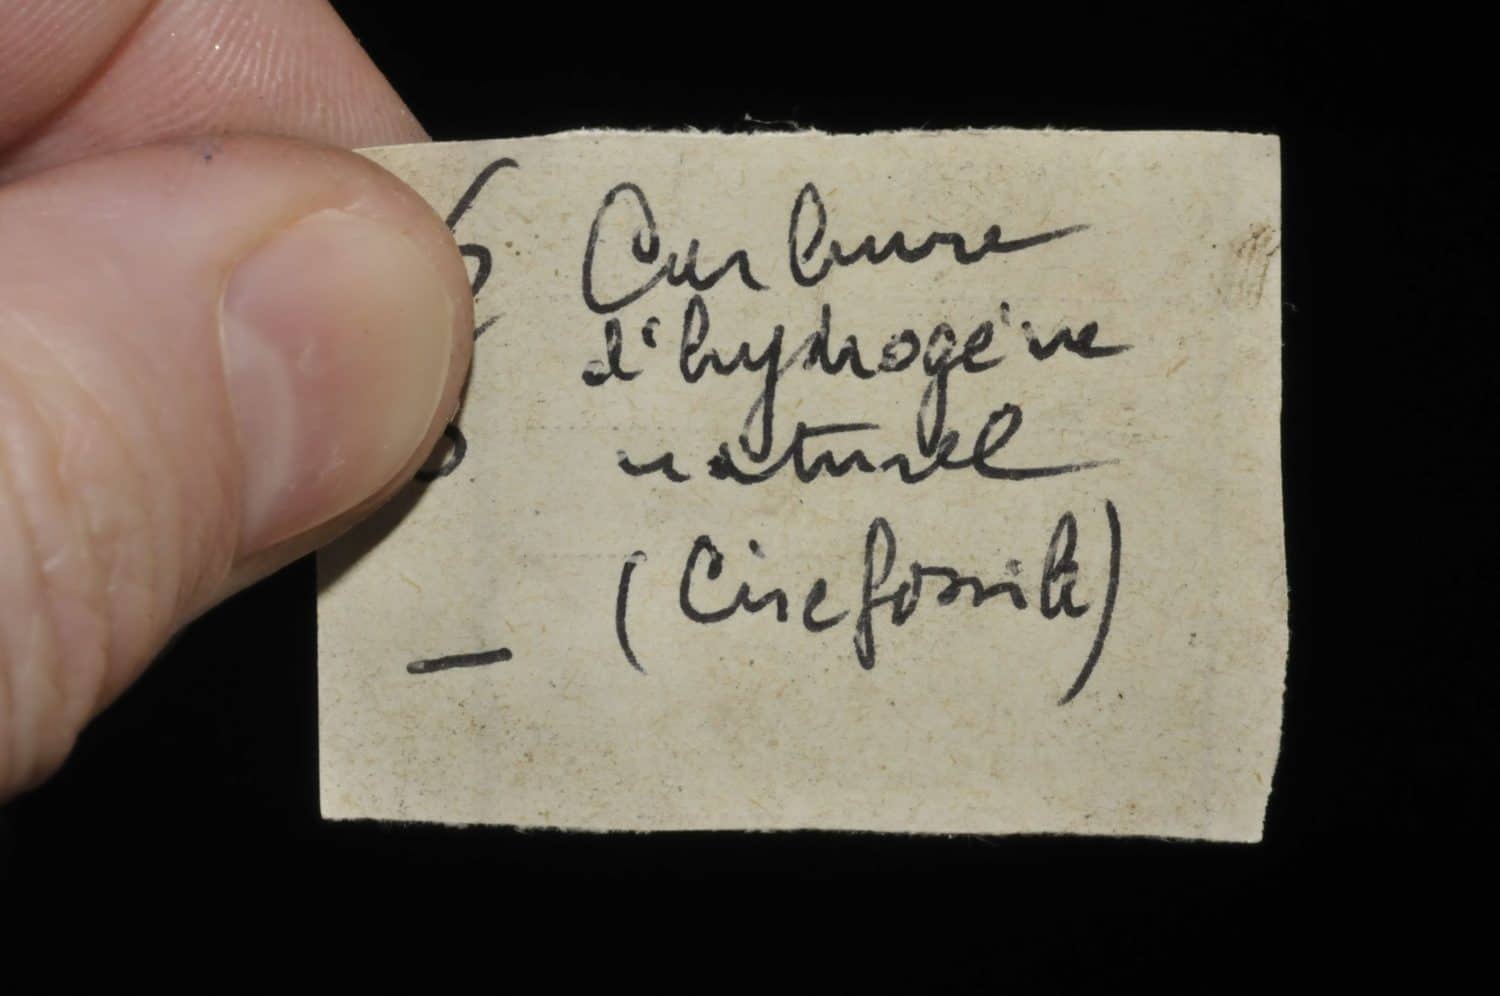 Carbure
d'hydrogéne
naturel
(Cire fossile)
—